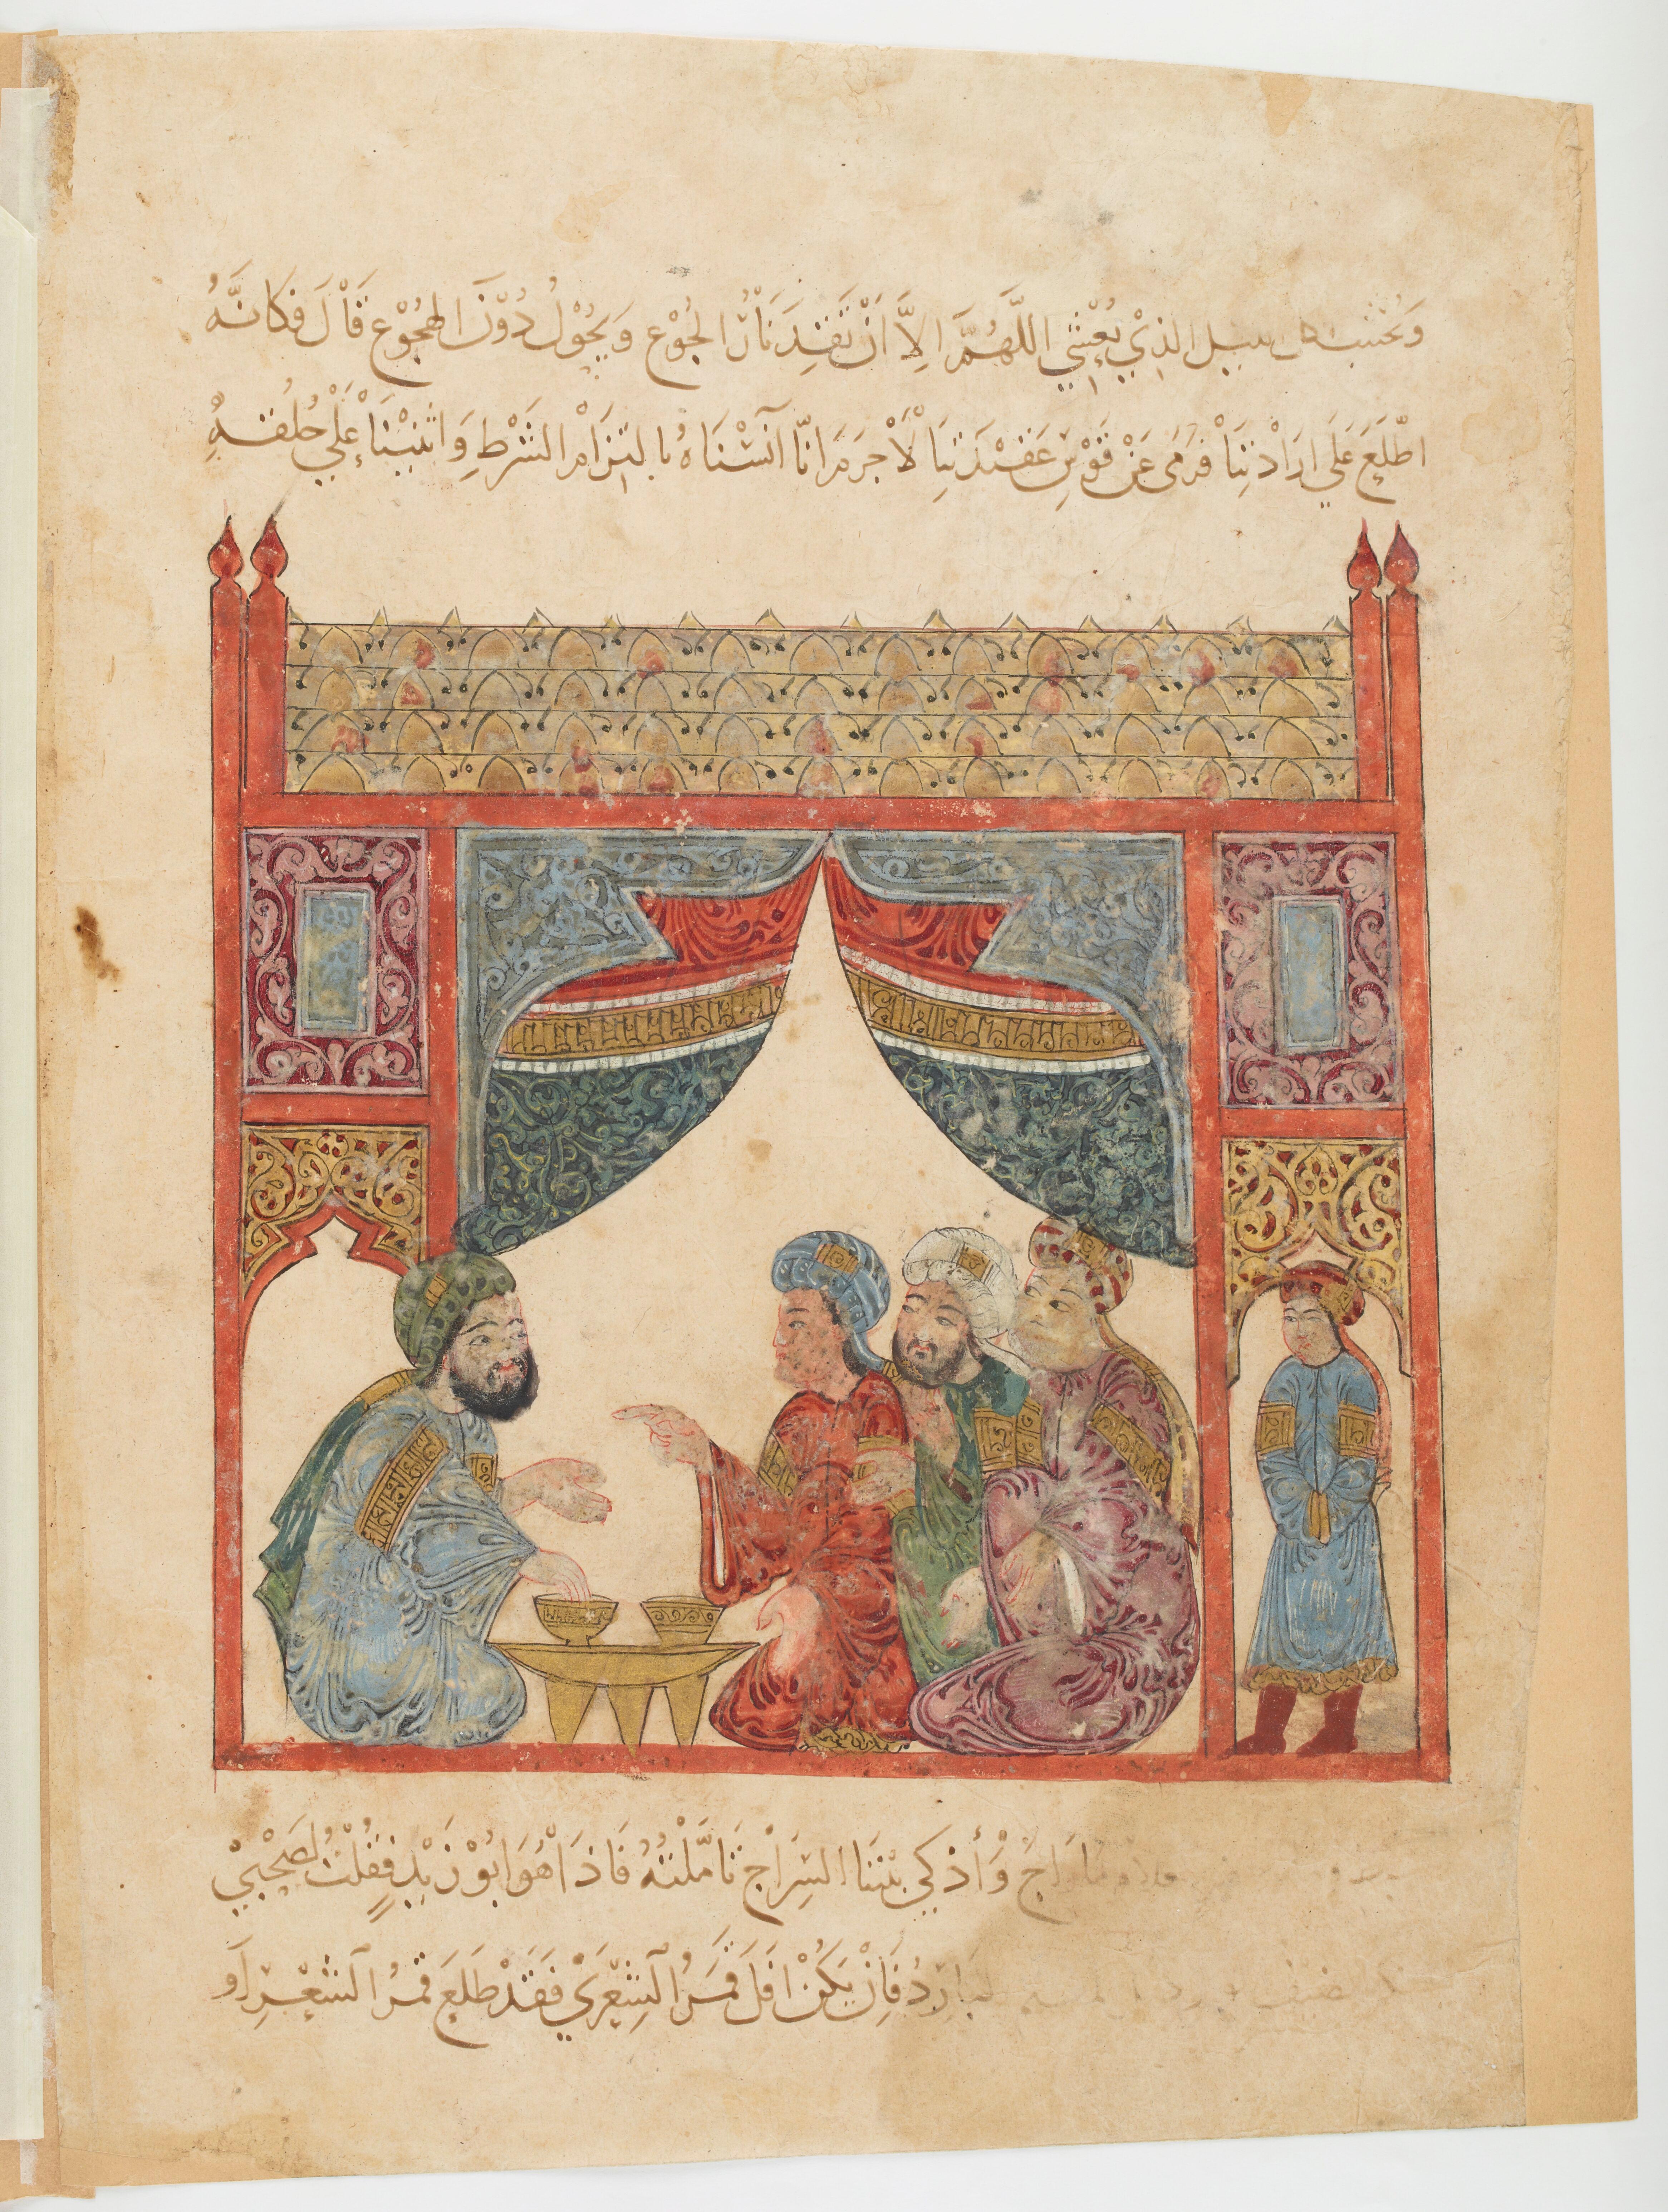 وَيُجْتَنَبُ الذِيْ يُعْشِي اللَّهُمَّ اِلاَّ اَنْ تَقِدَ نَارُ الجُوْعِ وَيَحُوْلُ دُوْنَ الهُجُوْعِ قَالَ فَكَانَّهُ
اطَّلَعَ عَلَي ارَادَتِنَا فَرَمَى عَنْ قَوْسِ عَقِيْدَتِنَا لاَ جَرَمَ انَّا آنَسْنَاهُ بالتِزَامِ الشَرْطِ وَاثنَيْنَا عَلَي خُلُقِهِ
مَا رَاجَ وَأَذْكِي بَيْنَنَا السِرَاجَ تَامَّلْتُهُ فَاذَا هُوَ ابُوْ زَيْدٍ فَقُلْتُ لِصَحْبِيْ
البَارِدُ فَانْ يَكُنْ افَلَ قَمَرُ الشِعْرَيْ فَقَدْ طَلَعَ قَمَرُ الشِعْرِ اَو